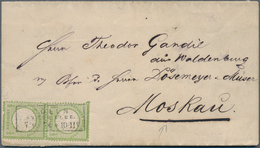 Herrn Theodor Gandil
aus Waldenburg
p/ Adr. d. Herrn Lösemeyer-Müser
Moskau.
10-11